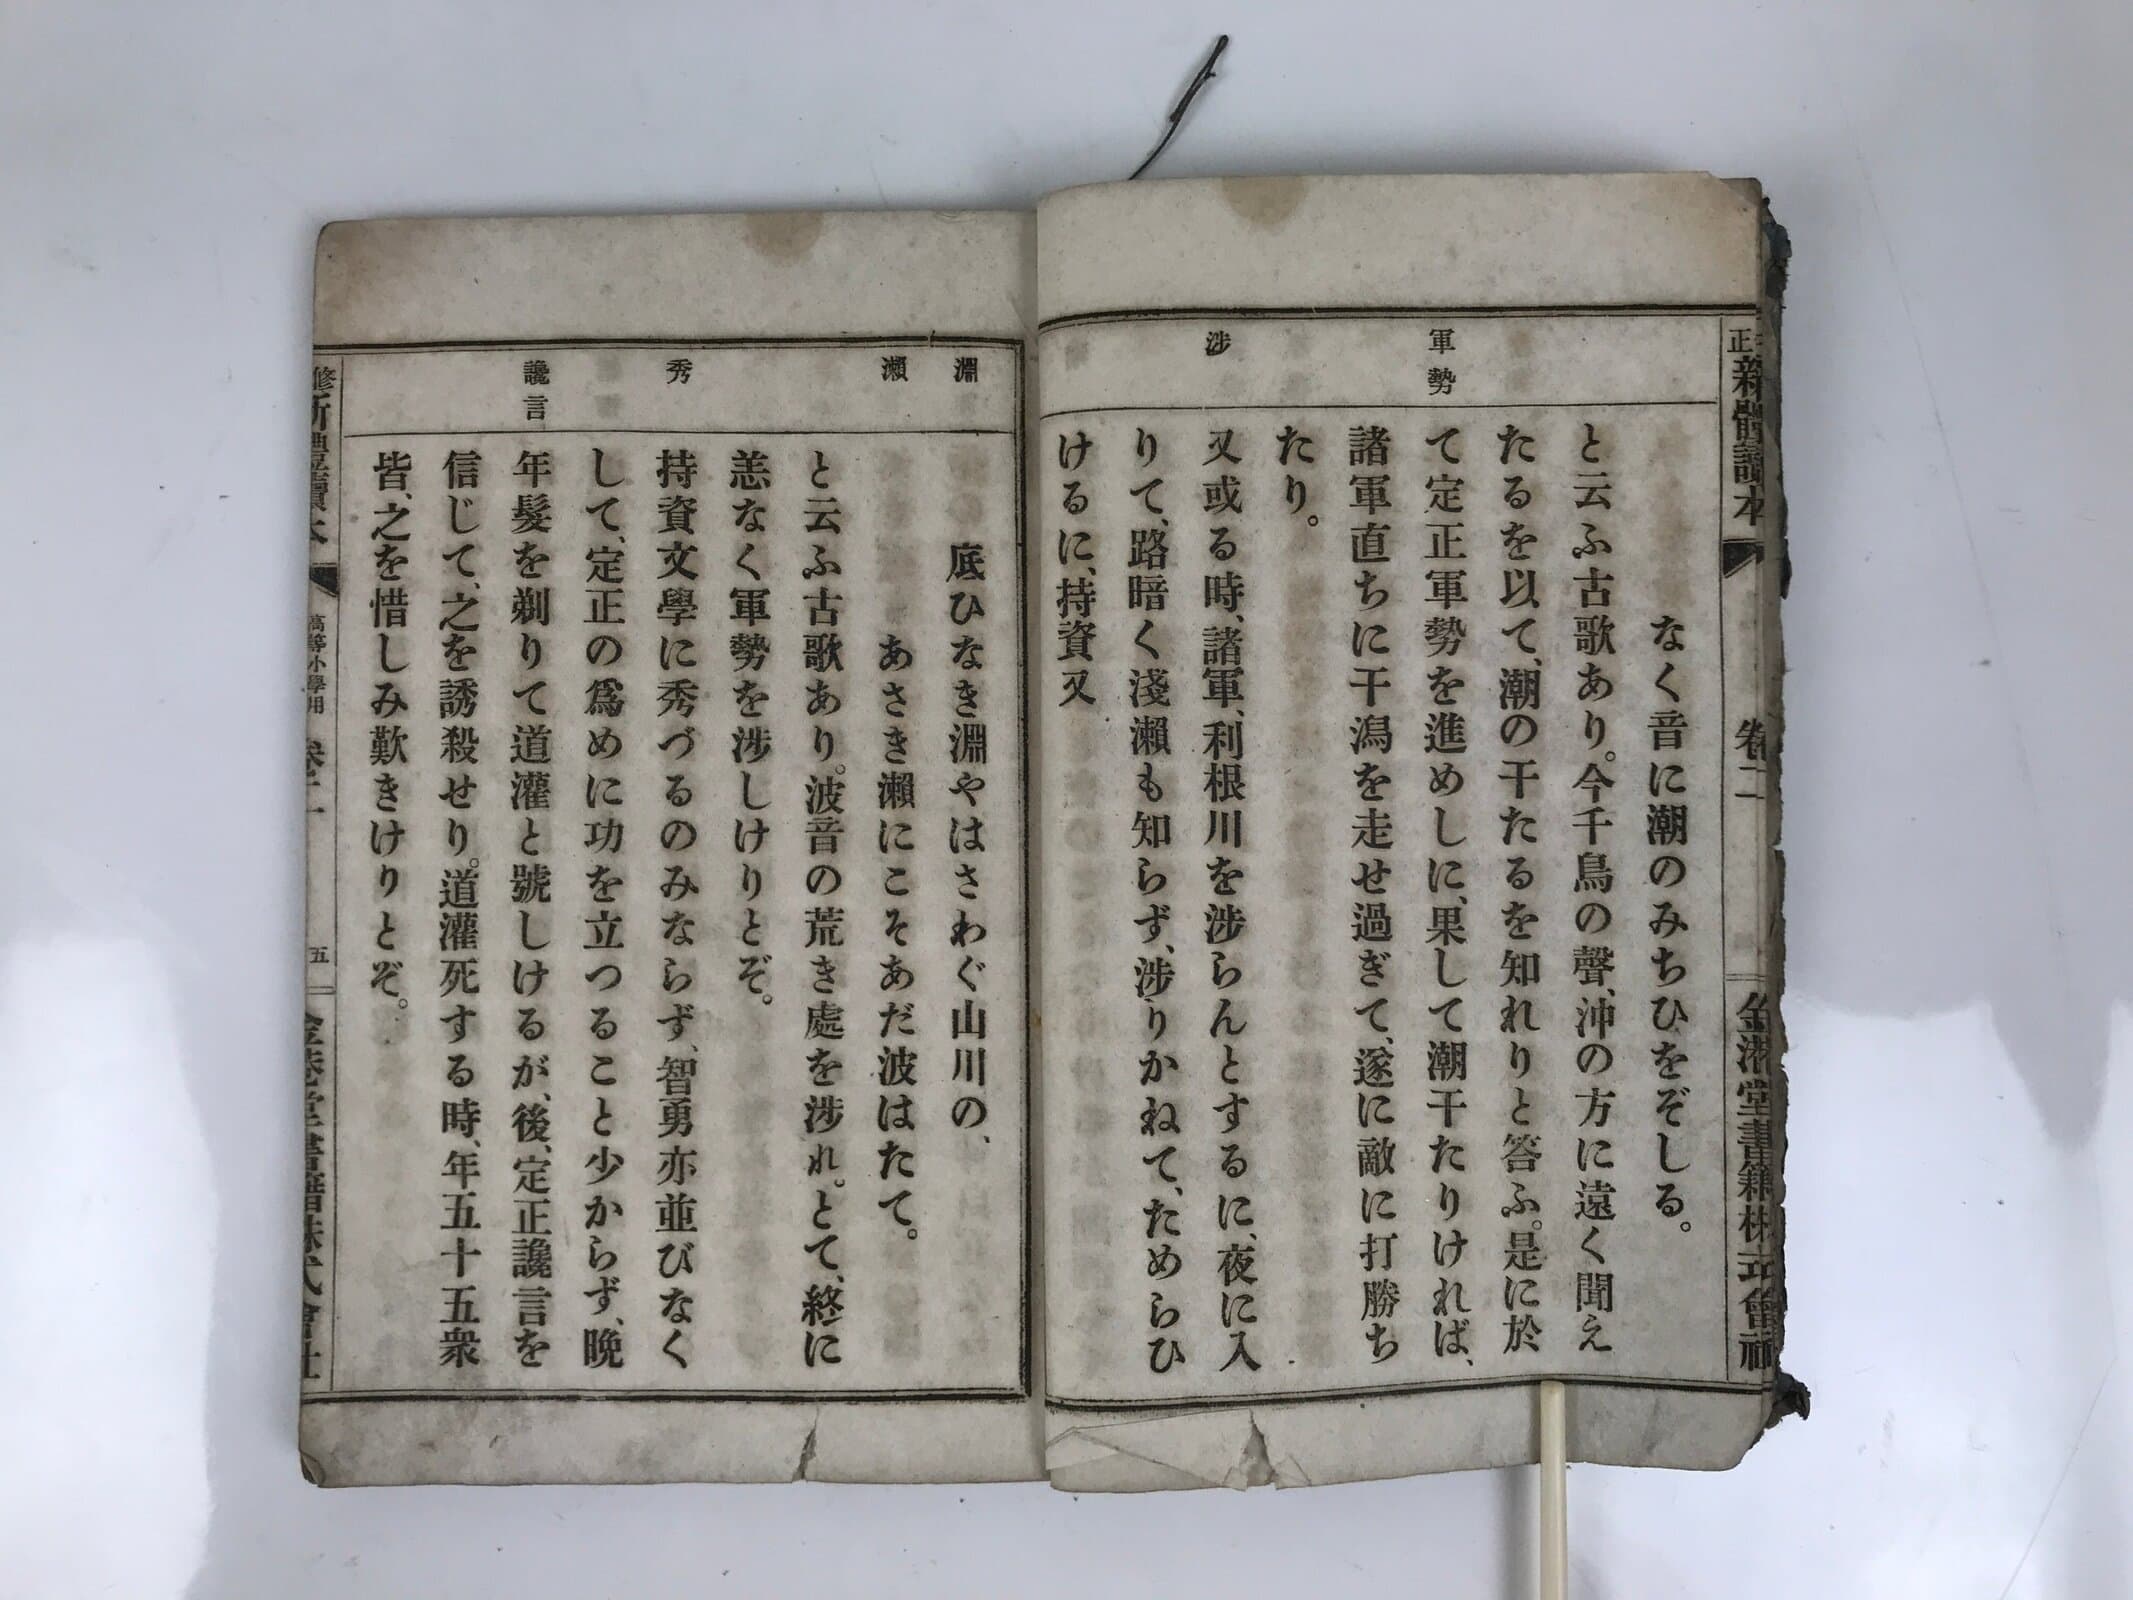 正新體讀本 卷二 金港堂書籍株式會社
軍勢
涉
なく音に潮のみちひをぞしる。
と云ふ古歌あり。今千鳥の聲、沖の方に遠く聞え
たるを以て、潮の干たるを知れりと答ふ。是に於
て定正軍勢を進めしに、果して潮干たりければ、
諸軍直ちに干潟を走せ過ぎて、遂に敵に打勝ち
たり。
又或る時、諸軍、利根川を涉らんとするに、夜に入
りて、路暗く淺瀨も知らず、涉りかねて、ためらひ
けるに、持資又
淵
瀨
秀
讒言
底ひなき淵やはさわぐ山川の、
あさき瀨にこそあだ波はたて。
と云ふ古歌あり。波音の荒き處を涉れ。とて、終に
恙なく軍勢を涉しけりとぞ。
持資文學に秀づるのみならず、智勇亦並びなく
して、定正の爲めに功を立つること少からず、晩
年髮を剃りて道灌と號しけるが、後、定正讒言を
信じて、之を誘殺せり。道灌死する時、年五十五衆
皆、之を惜しみ歎きけりとぞ。
修新體讀本 高等小學用 卷二 五 金港堂書籍株式會社